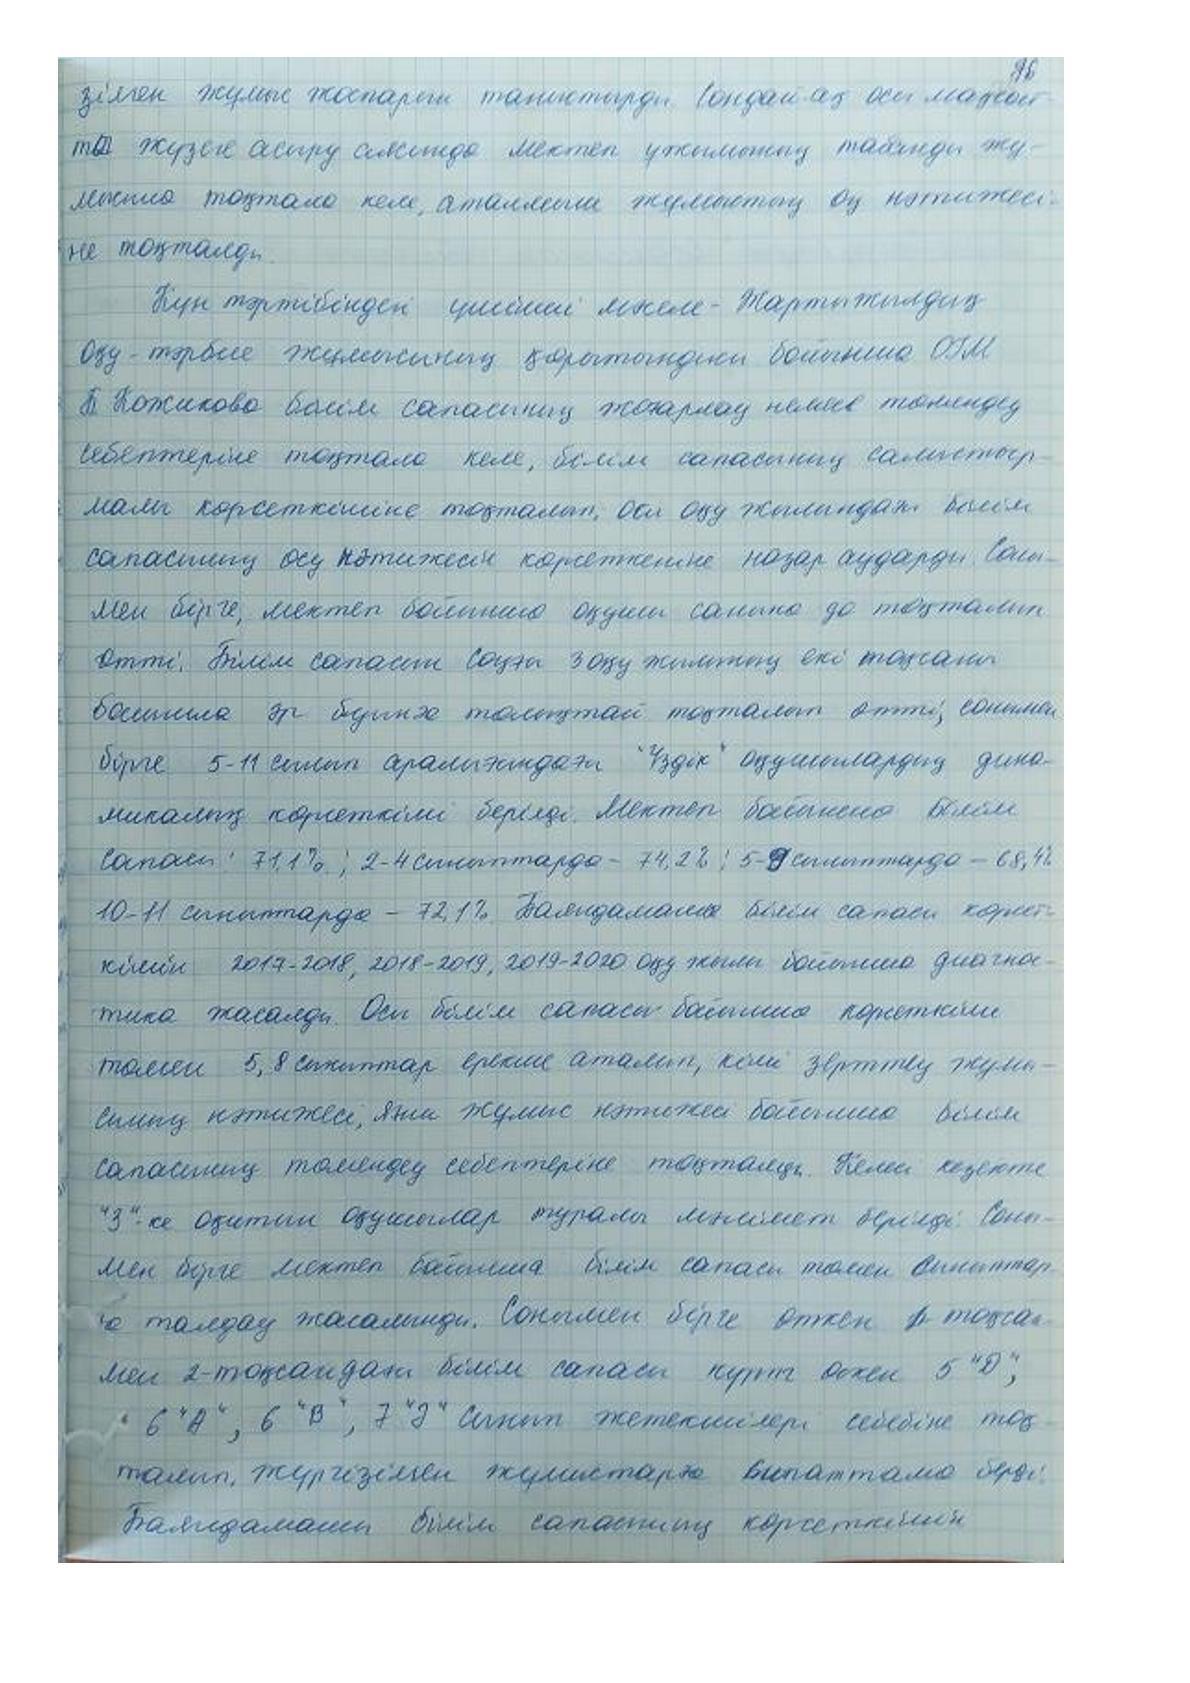 96
зілген жұмыс жоспарын таныстырды. Сондай-ақ осы мақсат-
та жүзеге асыру аясында мектеп ұжымының табанды жұ-
мысына тоқтала келе, аталмыш жұмыстың оң нәтижесі-
не тоқталды.
Күн тәртібіндегі үшінші мәселе - Жартыжылдық
оқу-тәрбие жұмысының қорытындысы бойынша ОІМ
Б Кожикова білім сапасының жоғарлау немесе төмендеу
себептеріне тоқтала келе, білім сапасының салыстыр-
малы көрсеткішіне тоқталып, осы оқу жылындағы білім
сапасының өсу нәтижесін көрсеткеніне назар аударды. Соны-
мен бірге, мектеп бойынша оқушы санына да тоқталып
өтті. Білім сапасын соңғы 3 оқу жылының екі тоқсаны
бойынша әр буынға толықтай тоқталып өтті, сонымен
бірге 5-11 сынып аралығындағы "Үздік" оқушылардың дина-
микалық көрсеткіші берілді. Мектеп бойынша білім
сапасы: 71,1%; 2-4 сыныптарда - 74,2%; 5-9 сыныптарда - 68,4%
10-11 сыныптарда - 72,1%. Баяндамашы білім сапасы көрсет-
кішін 2017-2018, 2018-2019, 2019-2020 оқу жылы бойынша диагнос-
тика жасалды. Осы білім сапасы бойынша көрсеткіші
төмен 5,8 сыныптар ерекше аталып, кіші зерттеу жұмы-
сының нәтижесі, яғни жұмыс нәтижесі бойынша білім
сапасының төмендеу себептеріне тоқталды. Келесі кезекте
"3"-ке оқитын оқушылар туралы мәлімет берілді. Соны-
мен бірге мектеп бойынша білім сапасы төмен сыныптар-
ға талдау жасалынды. Сонымен бірге өткен 1-тоқсан-
мен 2-тоқсандағы білім сапасы күрт өскен 5 "D",
6 "А", 6 "В", 7 "Ә" сынып жетекшілері себебіне тоқ-
талып, жүргізілген жұмыстарға сипаттама берді.
Баяндамашы білім сапасының көрсеткішін